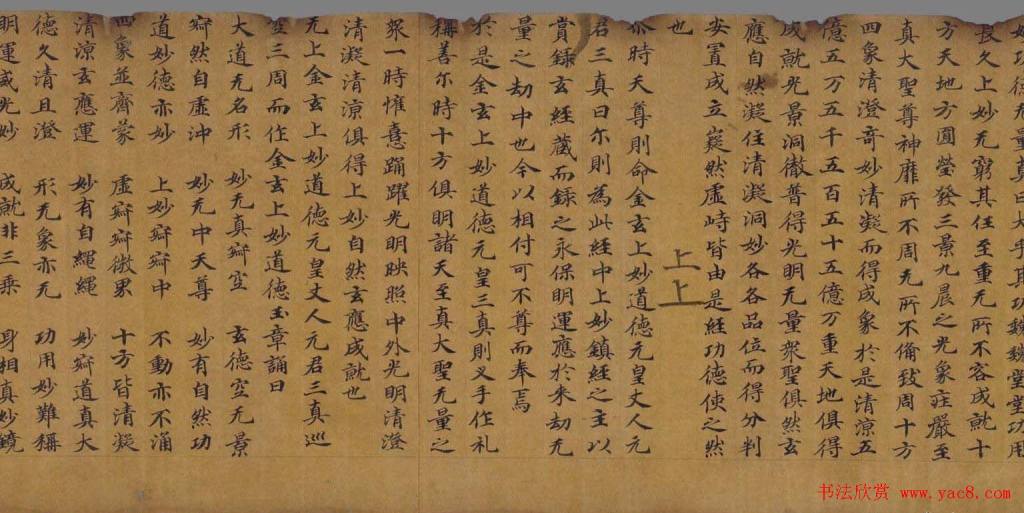 妙功德无量真曰大乎其功巍巍堂堂功用
長久上妙无窮其任至重无所不容成就十
方天地方圓瑩發三景九晨之光象莊嚴至
真大聖尊神靡所不周无所不備致周十方
四象清澄奇妙清凝而得成象於是清涼五
億五万五千五百五十五億万重天地俱得
成就光景洞徹普得光明无量衆聖俱然玄
應自然凝住清凝洞妙各各品位而得分判
安置成立嶷然虛峙皆由是經功德使之然
也
上上
尒時天尊則命金玄上妙道德元皇丈人元
君三真曰尒則為此經中上妙鎮經之主以
賞錄玄經藏而錄之永保明運應於来劫无
量之劫中也今以相付可不尊而奉焉
於是金玄上妙道德元皇三真則叉手作礼
稱善尒時十方俱明諸天至真大聖无量之
衆一時惟憙踊躍光明映照中外光明清澄
清凝清涼俱得上妙自然玄應成就也
元上金玄上妙道德元皇丈人元君三真巡
空三周而作金玄上妙道德玉章誦曰
大道无名形 妙无真寂空 玄德空无景
寂然自虛沖 妙无中天尊 妙有自然功
道妙德亦妙 上妙寂寂中 不動亦不涌
四象並齊蒙 虛寂寂徹累 十方皆清凝
清涼玄應運 妙有自繩繩 妙寂道真大
德久清且澄 形无象亦无 功用妙難稱
明運威光妙 成就非三乘 身相真妙鏡
书法欣赏 www.yac8.com